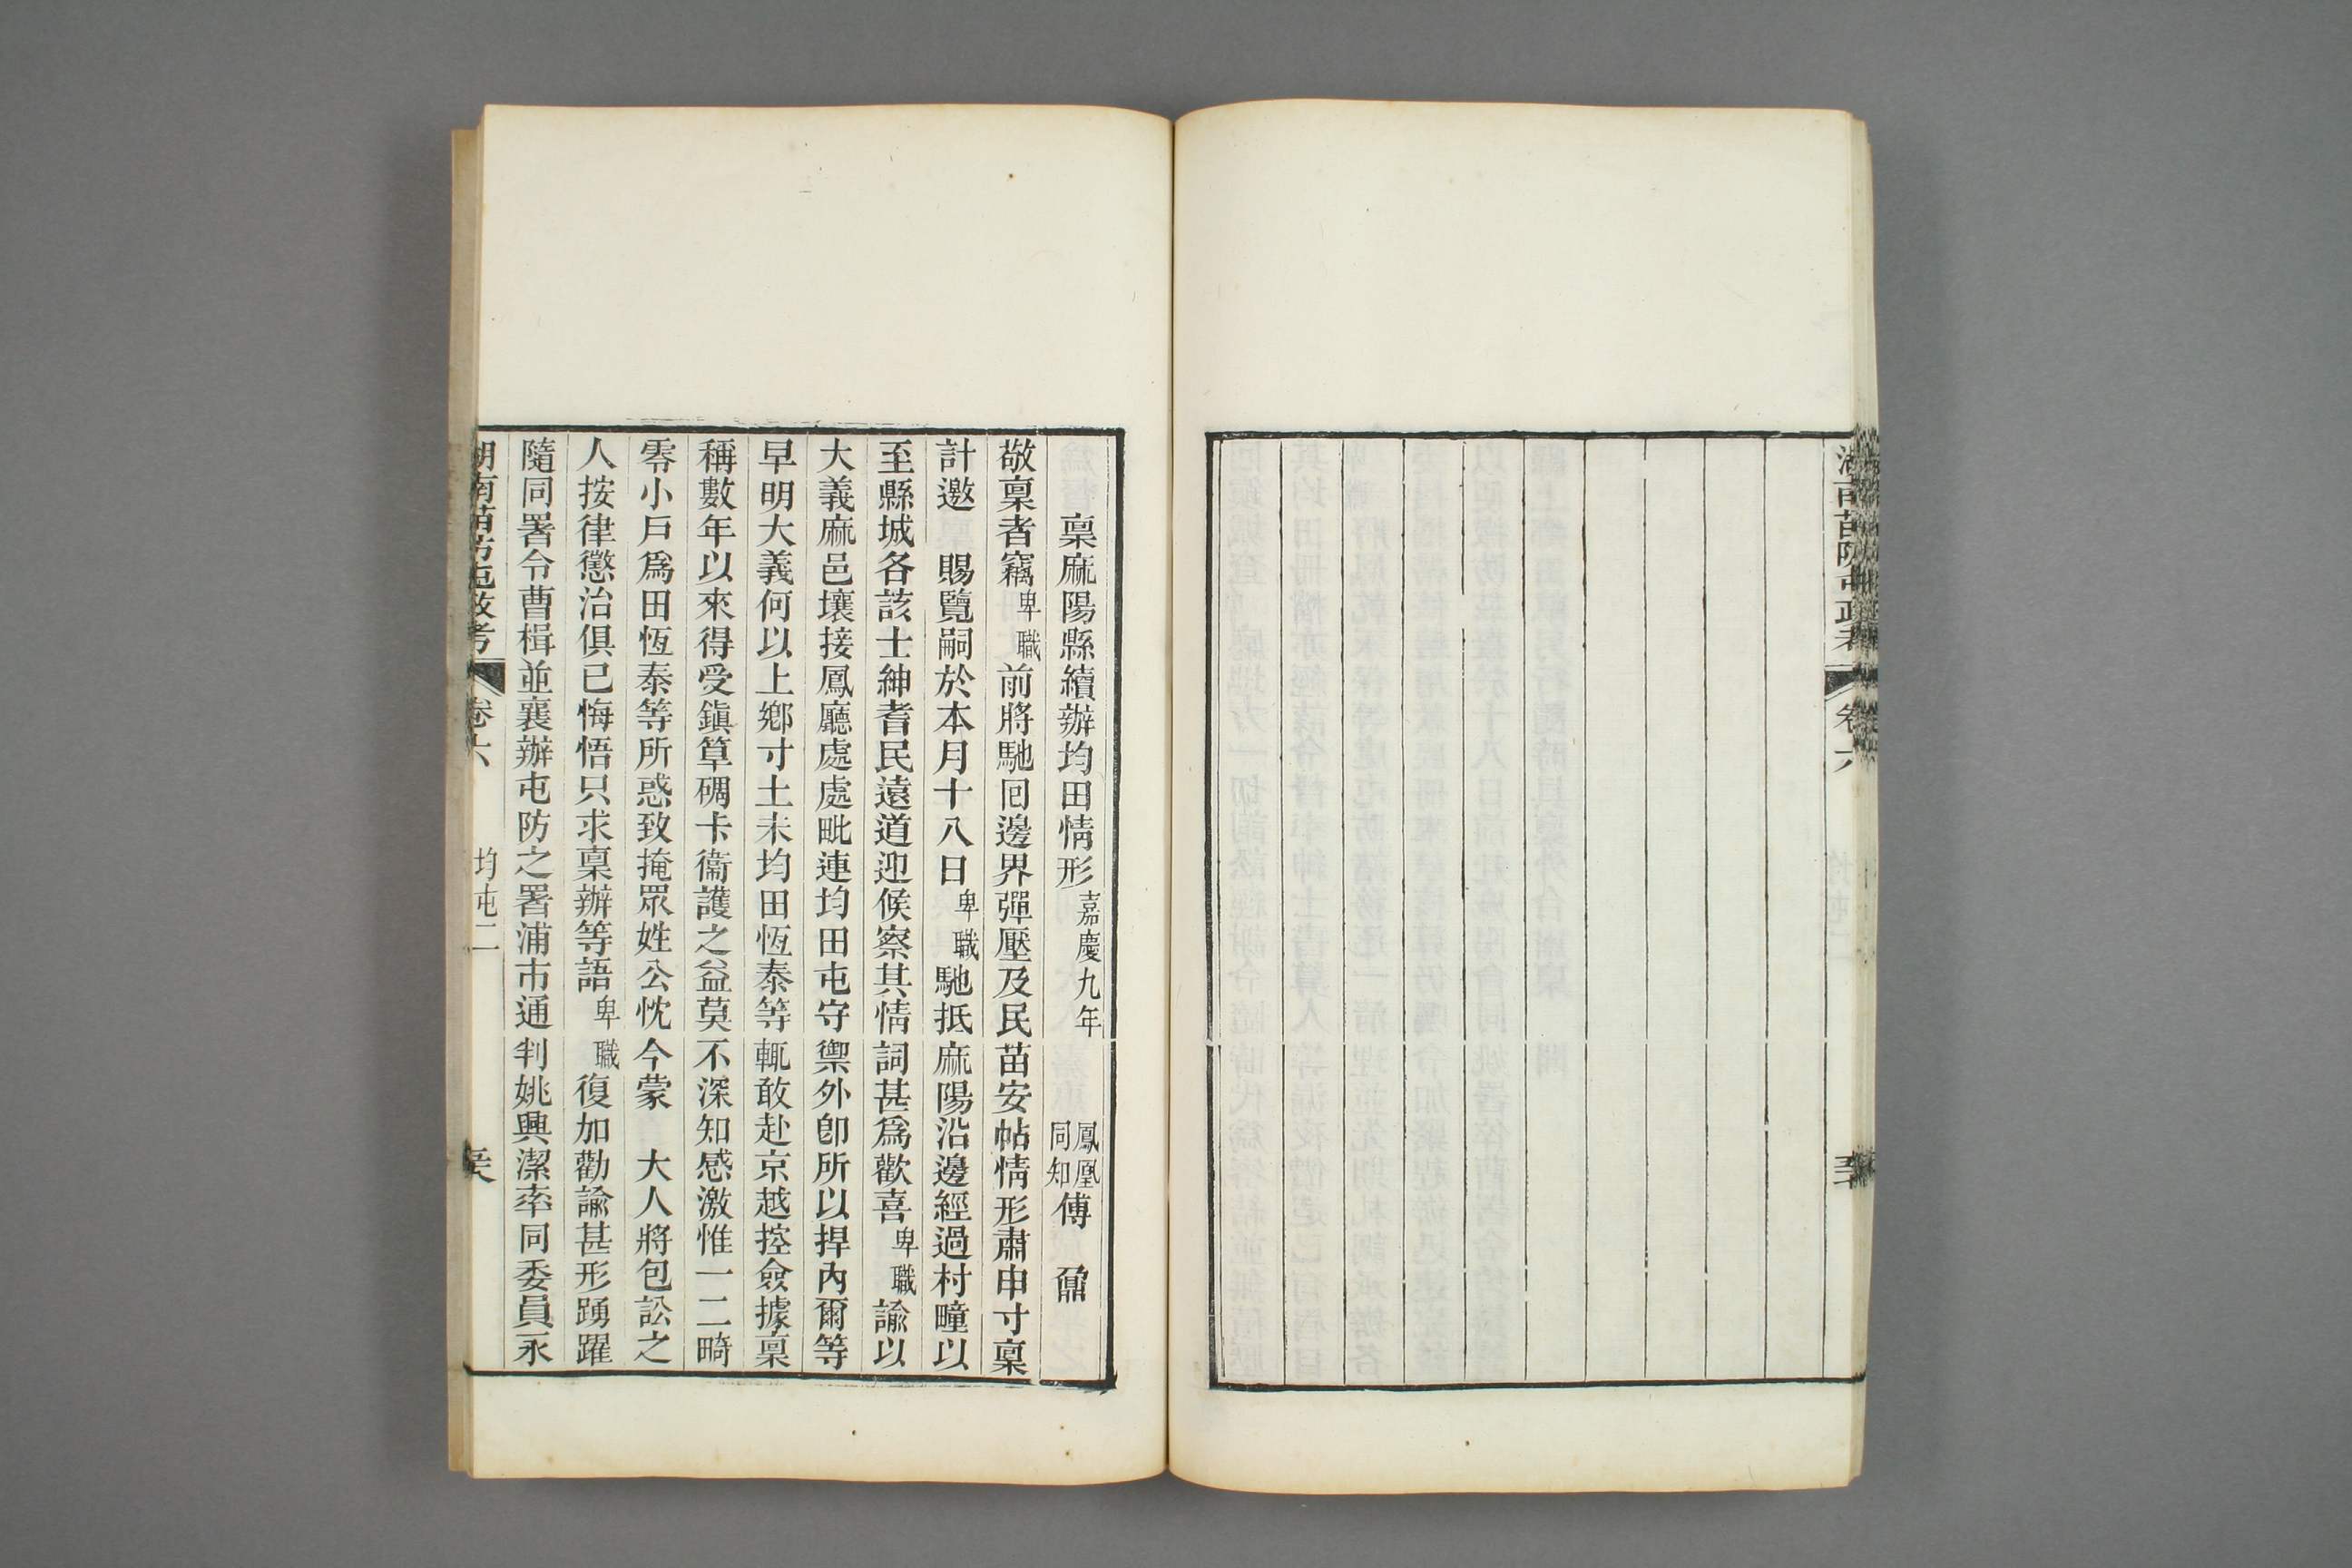 湖南苗防屯政考 卷六
稟麻陽縣續辦均田情形 嘉慶九年 鳳凰同知 傅鼐
敬稟者竊卑職前將馳回邊界彈壓及民苗安帖情形肅申寸稟
計邀 賜覽嗣於本月十八日卑職馳抵麻陽沿邊經過村疃以
至縣城各該士紳耆民遠道迎候察其情詞甚爲歡喜卑職諭以
大義麻邑壤接鳳廳處處毗連均田屯守禦外卽所以捍內爾等
早明大義何以上鄉寸土未均田恆泰等輒敢赴京越控僉據稟
稱數年以來得受鎭筸碉卡衞護之益莫不深知感激惟一二畸
零小戶爲田恆泰等所惑致掩眾姓公忱今蒙 大人將包訟之
人按律懲治俱已悔悟只求稟辦等語卑職復加勸諭甚形踴躍
隨同署令曹楫並襄辦屯防之署浦市通判姚興潔率同委員永
湖南苗防屯政考 卷六 均屯二